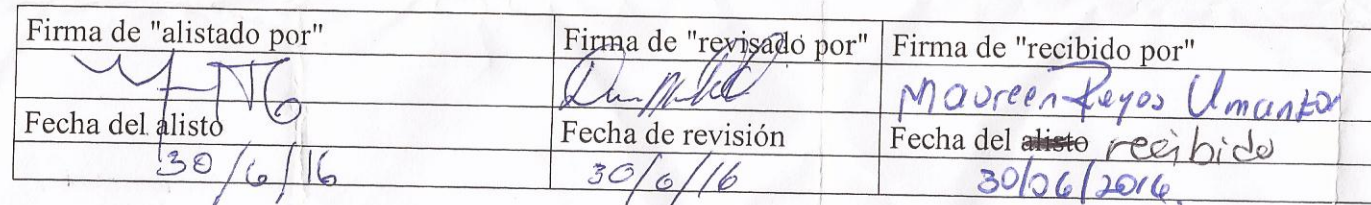 Firma de "alistado por" Firma de "revisado por" Firma de "recibido por"
Maureen Reyes Umanzor
Fecha del alisto Fecha de revisión Fecha del alisto recibido
30/6/16 30/6/16 30/06/2016.